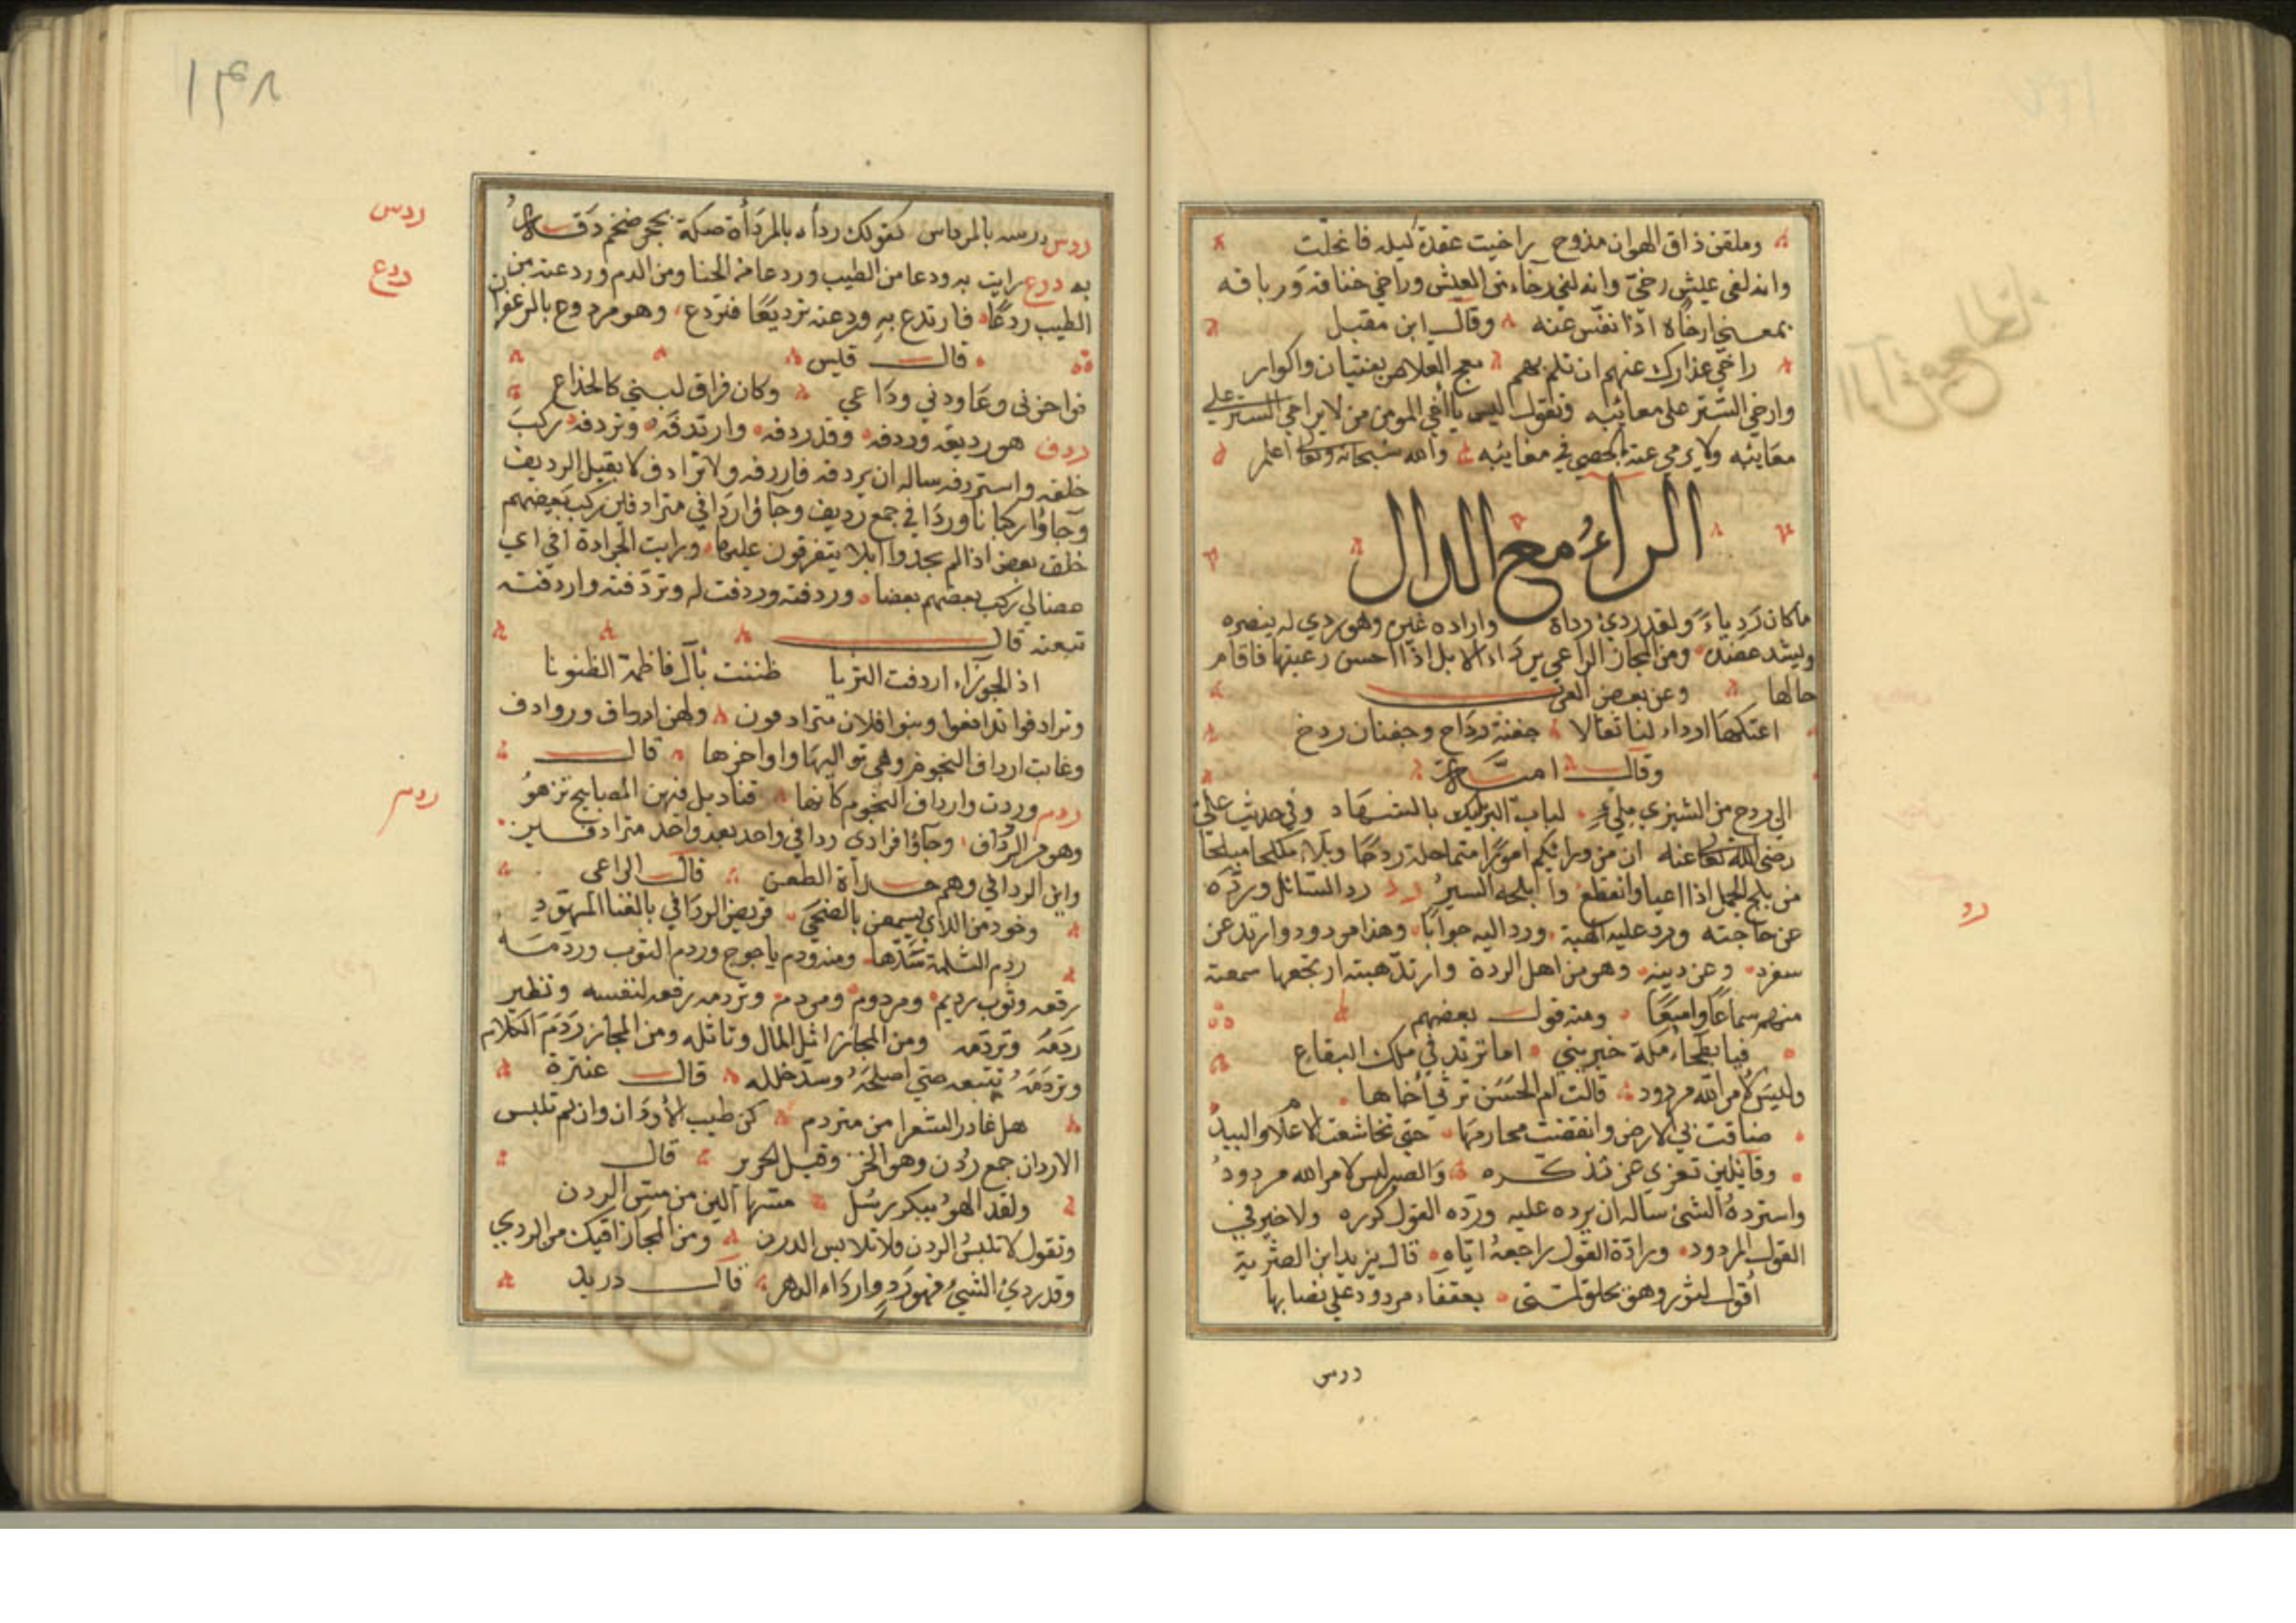 وملقن ذاق الهوان مذوح راخيت عقدة كبله فانحلت
وانه لفي عيش رخيّ وانه لفي رخاء من العيش وراخي خناقه ورباقه
بمعني ارخاه اذا نفّس عنه وقال ابن مقبل
راخي عذارك عنهم ان تلم بهم معج العلاهن بفتيان واكوار
وارخي الستر علي معائبه وتقول ليس باخي المومن من لا يراخي الستر علي
معائبه ولا يرمي عنه الحصي في مغائبه والله سبحانه وتعالي اعلم
الراء مع الدال
ما كان رديا ولقد ردئ رداة واراده غيره وهو ردي له ينصره
ويشد عضده ومن المجاز الراعي يرداء الابل اذا احسن رعيتها فاقام
حالها وعن بعض العرب
اعتكمها ارداء لنا ثقالا جفنة رداح وجفنان ردح
وقال امية
الي ردح من الشيزي ملء لباب البر يلبك بالشهاد وفي حديث علي
رضي الله تعالي عنه ان من ورائكم امورا متماحلة ردحا وبلاء مكلحا مبلحا
من بلح الجمل اذا اعيا وانقطع وابلحه السير رد رد السائل وردّه
عن حاجته ورد عليه الهبة ورد اليه جوابا وهذا مردود وارتد عن
سفره وعن دينه وهو من اهل الردة وارتد هبته ارتجعها سمعته
منهم سماعا واسعا ومنه قول بعضهم
فيا بطحاء مكة خبريني اما ترتد في ملك البقاع
وليس لامر الله مردود قالت ام الحسن ترثي اخاها
ضاقت بي الارض وانقضت محارمها حتي تخاشعت الاعلام والبيد
وقائلين تعزي عن تذكره والصبر ليس لامر الله مردود
واسترده الشئ ساله ان يرده عليه وردّه القول كرره ولا خير في
القول المردود ورادّه القول راجعه اياه قال يزيد ابن الطثرية
اقول لثور وهو يحلق لمتي بعقفاء مردود علي نصابها
ردس
رد
١٣٨
ردس ردسه بالمرداس كقولك رداه بالمرداة صكه بحجر ضخم دقه
به ردع رايت به ردعا من الطيب وردعا من الحنا ومن الدم وردعته من
الطيب ردعا فارتدع به وردعته ترديعا فتردع وهو مردوع بالزعفران
قال قيس
فواحزني وعاودني رداعي وكان فراق لبني كالخداع
ردف هو رديفه وردفه وقد ردفه وارتدفه وتردفه ركب
خلفه واستردفه ساله ان يردفه فاردفه ولا ترادف لا يقبل الرديف
وجاؤا ركبانا وردافي جمع رديف وجاؤا ردافي مترادفين ركب بعضهم
خلف بعض اذا لم يجدوا ابلا يتفرقون عليها ورايت الجرادة افي اي
ركب بعضهم بعضا وردفته وردفت له وتردفته واردفته
تبعته قال
اذ الجوزاء اردفت الثريا ظننت بآل فاطمة الظنونا
وترادفوا تدافعوا وبنوا فلان مترادفون ولهن ارداف وروادف
وغابت ارداف النجوم وهي تواليها واواخرها قال
وردت وارداف النجوم كانها قناديل فيهن المصابيح تزهو
وهو من الرداف وجاؤا فرادي ردافي واحد بعد واحد مترادفين
واين الردافي وهم حداة الظعن قال الراعي
وخود من اللاي يسمعن بالضحي قريض الردافي بالغنا المهود
ردم الثلمة سدها ومنه ردم ياجوج وردم الثوب وردّمه
رقعه وثوب رديم ومردوم ومردم وتردمه رقعه لنفسه ونظير
ردمه وتردمه ومن المجاز اثل المال وتاثله ومن المجاز ردم الكلام
وتردمه تتبعه حتي اصلحه وسد خلله قال عنترة
هل غادر الشعرا من متردم كن طيب الاردان وان لم تلبس
الاردان جمع ردن وهو الخز وقيل الحرير قال
ولقد الهو ببكر رسل مسها الين من مس الردن
وتقول لا تلبس الردن ولا تلابس الدرن ومن المجاز اقيك من الردي
وقد ردئ الشئ فهو رد وارداه الدهر قال دريد
ردس
ردع
ردم